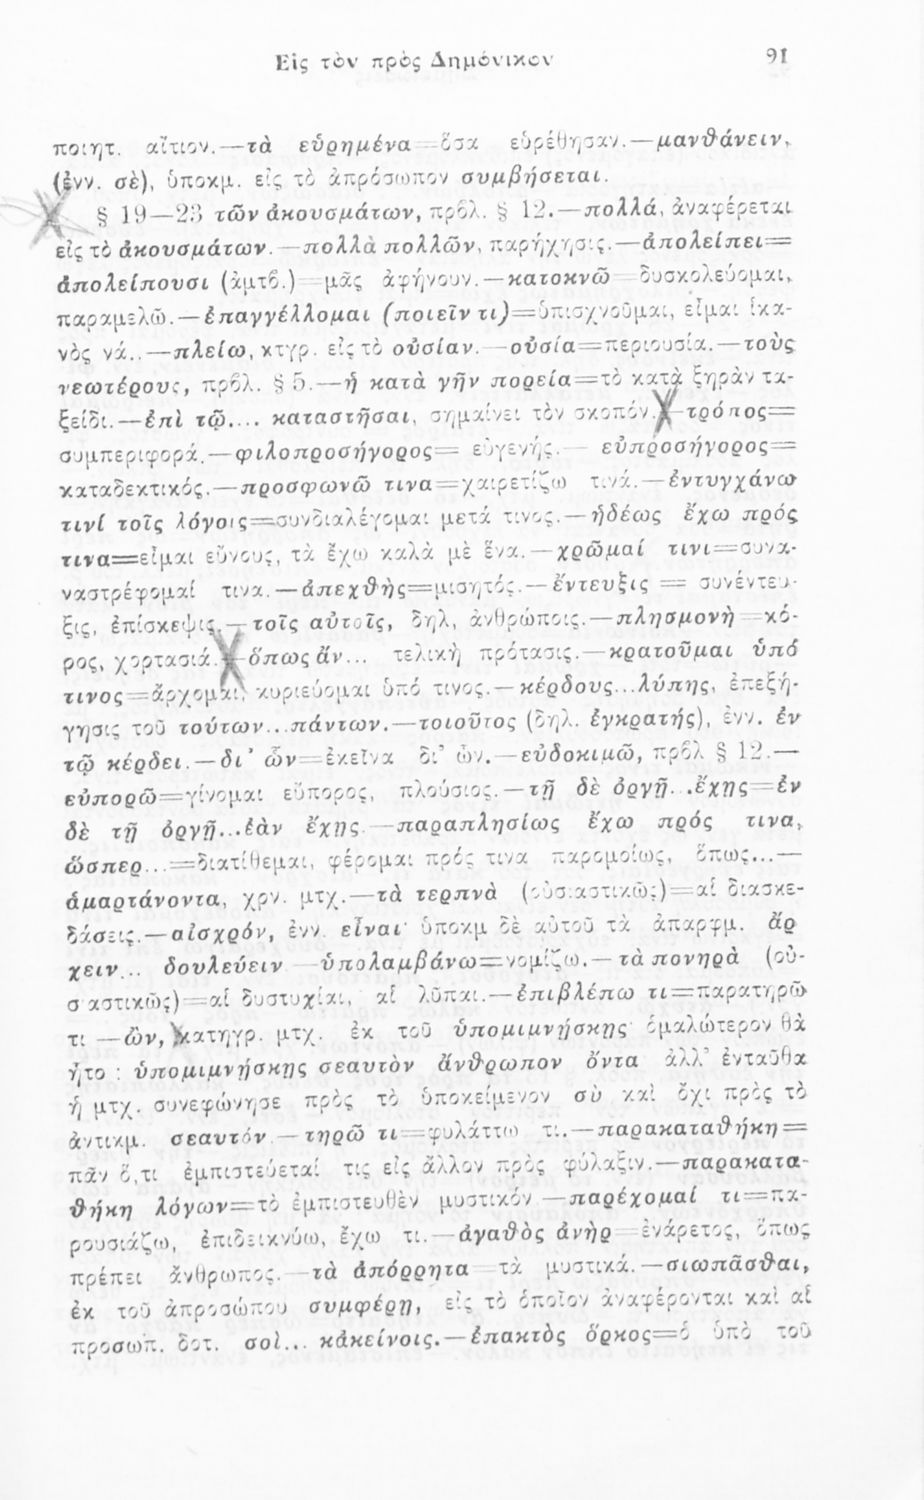 Εἰς τὸν πρὸς Δημόνικον 91
ποιητ. αἴτιον.—τὰ εὑρημένα=ὅσα εὑρέθησαν.—μανθάνειν,
(ἐνν. σὲ), ὑποκμ. εἰς τὸ ἀπρόσωπον συμβήσεται.
§ 19—23 τῶν ἀκουσμάτων, πρβλ. § 12.—πολλά, ἀναφέρεται
εἰς τὸ ἀκουσμάτων.—πολλὰ πολλῶν, παρήχησις.—ἀπολείπει=
ἀπολείπουσι (ἀμτβ.)=μᾶς ἀφήνουν.—κατοκνῶ=δυσκολεύομαι,
παραμελῶ.—ἐπαγγέλλομαι (ποιεῖν τι)=ὑπισχνοῦμαι, εἶμαι ἱκα-
νὸς νά..—πλείω, κτγρ. εἰς τὸ οὐσίαν.—οὐσία=περιουσία.—τοὺς
νεωτέρους, πρβλ. § 5.—ἡ κατὰ γῆν πορεία=τὸ κατὰ ξηρὰν τα-
ξείδι.—ἐπὶ τῷ.... καταστῆσαι, σημαίνει τὸν σκοπόν.—τρόπος=
συμπεριφορά.—φιλοπροσήγορος=εὐγενής.—εὐπροσήγορος=
καταδεκτικός.—προσφωνῶ τινα=χαιρετίζω τινά.—ἐντυγχάνω
τινί τοῖς λόγοις=συνδιαλέγομαι μετά τινος.—ἡδέως ἔχω πρός
τινα=εἶμαι εὔνους, τὰ ἔχω καλὰ μὲ ἕνα.—χρῶμαί τινι=συνα-
ναστρέφομαί τινα.—ἀπεχθὴς=μισητός.—ἔντευξις = συνέντευ-
ξις, ἐπίσκεψις.—τοῖς αὐτοῖς, δηλ, ἀνθρώποις.—πλησμονὴ=κό-
ρος, χορτασιά.—ὅπως ἄν... τελικὴ πρότασις.—κρατοῦμαι ὑπό
τινος=ἄρχομαι, κυριεύομαι ὑπό τινος.—κέρδους...λύπης, ἐπεξή-
γησις τοῦ τούτων...πάντων.—τοιοῦτος (δηλ. ἐγκρατής), ἐνν. ἐν
τῷ κέρδει.—δι᾽ ὧν=ἐκεῖνα δι᾽ ὧν.—εὐδοκιμῶ, πρβλ § 12.—
εὐπορῶ=γίνομαι εὔπορος, πλούσιος.—τῇ δὲ ὀργῇ..ἔχῃς=ἐν
δὲ τῇ ὀργῇ...ἐὰν ἔχῃς.—παραπλησίως ἔχω πρός τινα,
ὥσπερ...=διατίθεμαι, φέρομαι πρός τινα παρομοίως, ὅπως...—
ἁμαρτάνοντα, χρν. μτχ.—τὰ τερπνὰ (οὐσιαστικῶς)=αἱ διασκε-
δάσεις.—αἰσχρόν, ἐνν. εἶναι· ὑποκμ δὲ αὐτοῦ τὰ ἀπαρφμ. ἄρ
χειν... δουλεύειν—ὑπολαμβάνω=νομίζω.—τὰ πονηρὰ (οὐ-
σ αστικῶς)=αἱ δυστυχίαι, αἱ λῦπαι.—ἐπιβλέπω τι=παρατηρῶ
τι —ὤν, κατηγρ. μτχ. ἐκ τοῦ ὑπομιμνήσκῃς· ὁμαλώτερον θὰ
ἦτο : ὑπομιμνήσκῃς σεαυτὸν ἄνθρωπον ὄντα ἀλλ᾽ ἐνταῦθα
ἡ μτχ. συνεφώνησε πρὸς τὸ ὑποκείμενον σὺ καὶ ὄχι πρὸς τὸ
ἀντικμ. σεαυτόν.—τηρῶ τι=φυλάττω τι.—παρακαταθήκη=
πᾶν ὅ,τι ἐμπιστεύεταί τις εἰς ἄλλον πρὸς φύλαξιν.—παρακατα-
θήκη λόγων=τὸ ἐμπιστευθὲν μυστικόν—παρέχομαί τι=πα-
ρουσιάζω, ἐπιδεικνύω, ἔχω τι.—ἀγαθὸς ἀνὴρ=ἐνάρετος, ὅπως
πρέπει ἄνθρωπος.—τὰ ἀπόρρητα=τὰ μυστικά.—σιωπᾶσθαι,
ἐκ τοῦ ἀπροσώπου συμφέρῃ, εἰς τὸ ὁποῖον ἀναφέρονται καὶ αἱ
προσωπ. δοτ. σοὶ... κἀκείνοις.—ἐπακτὸς ὅρκος=ὁ ὑπὸ τοῦ